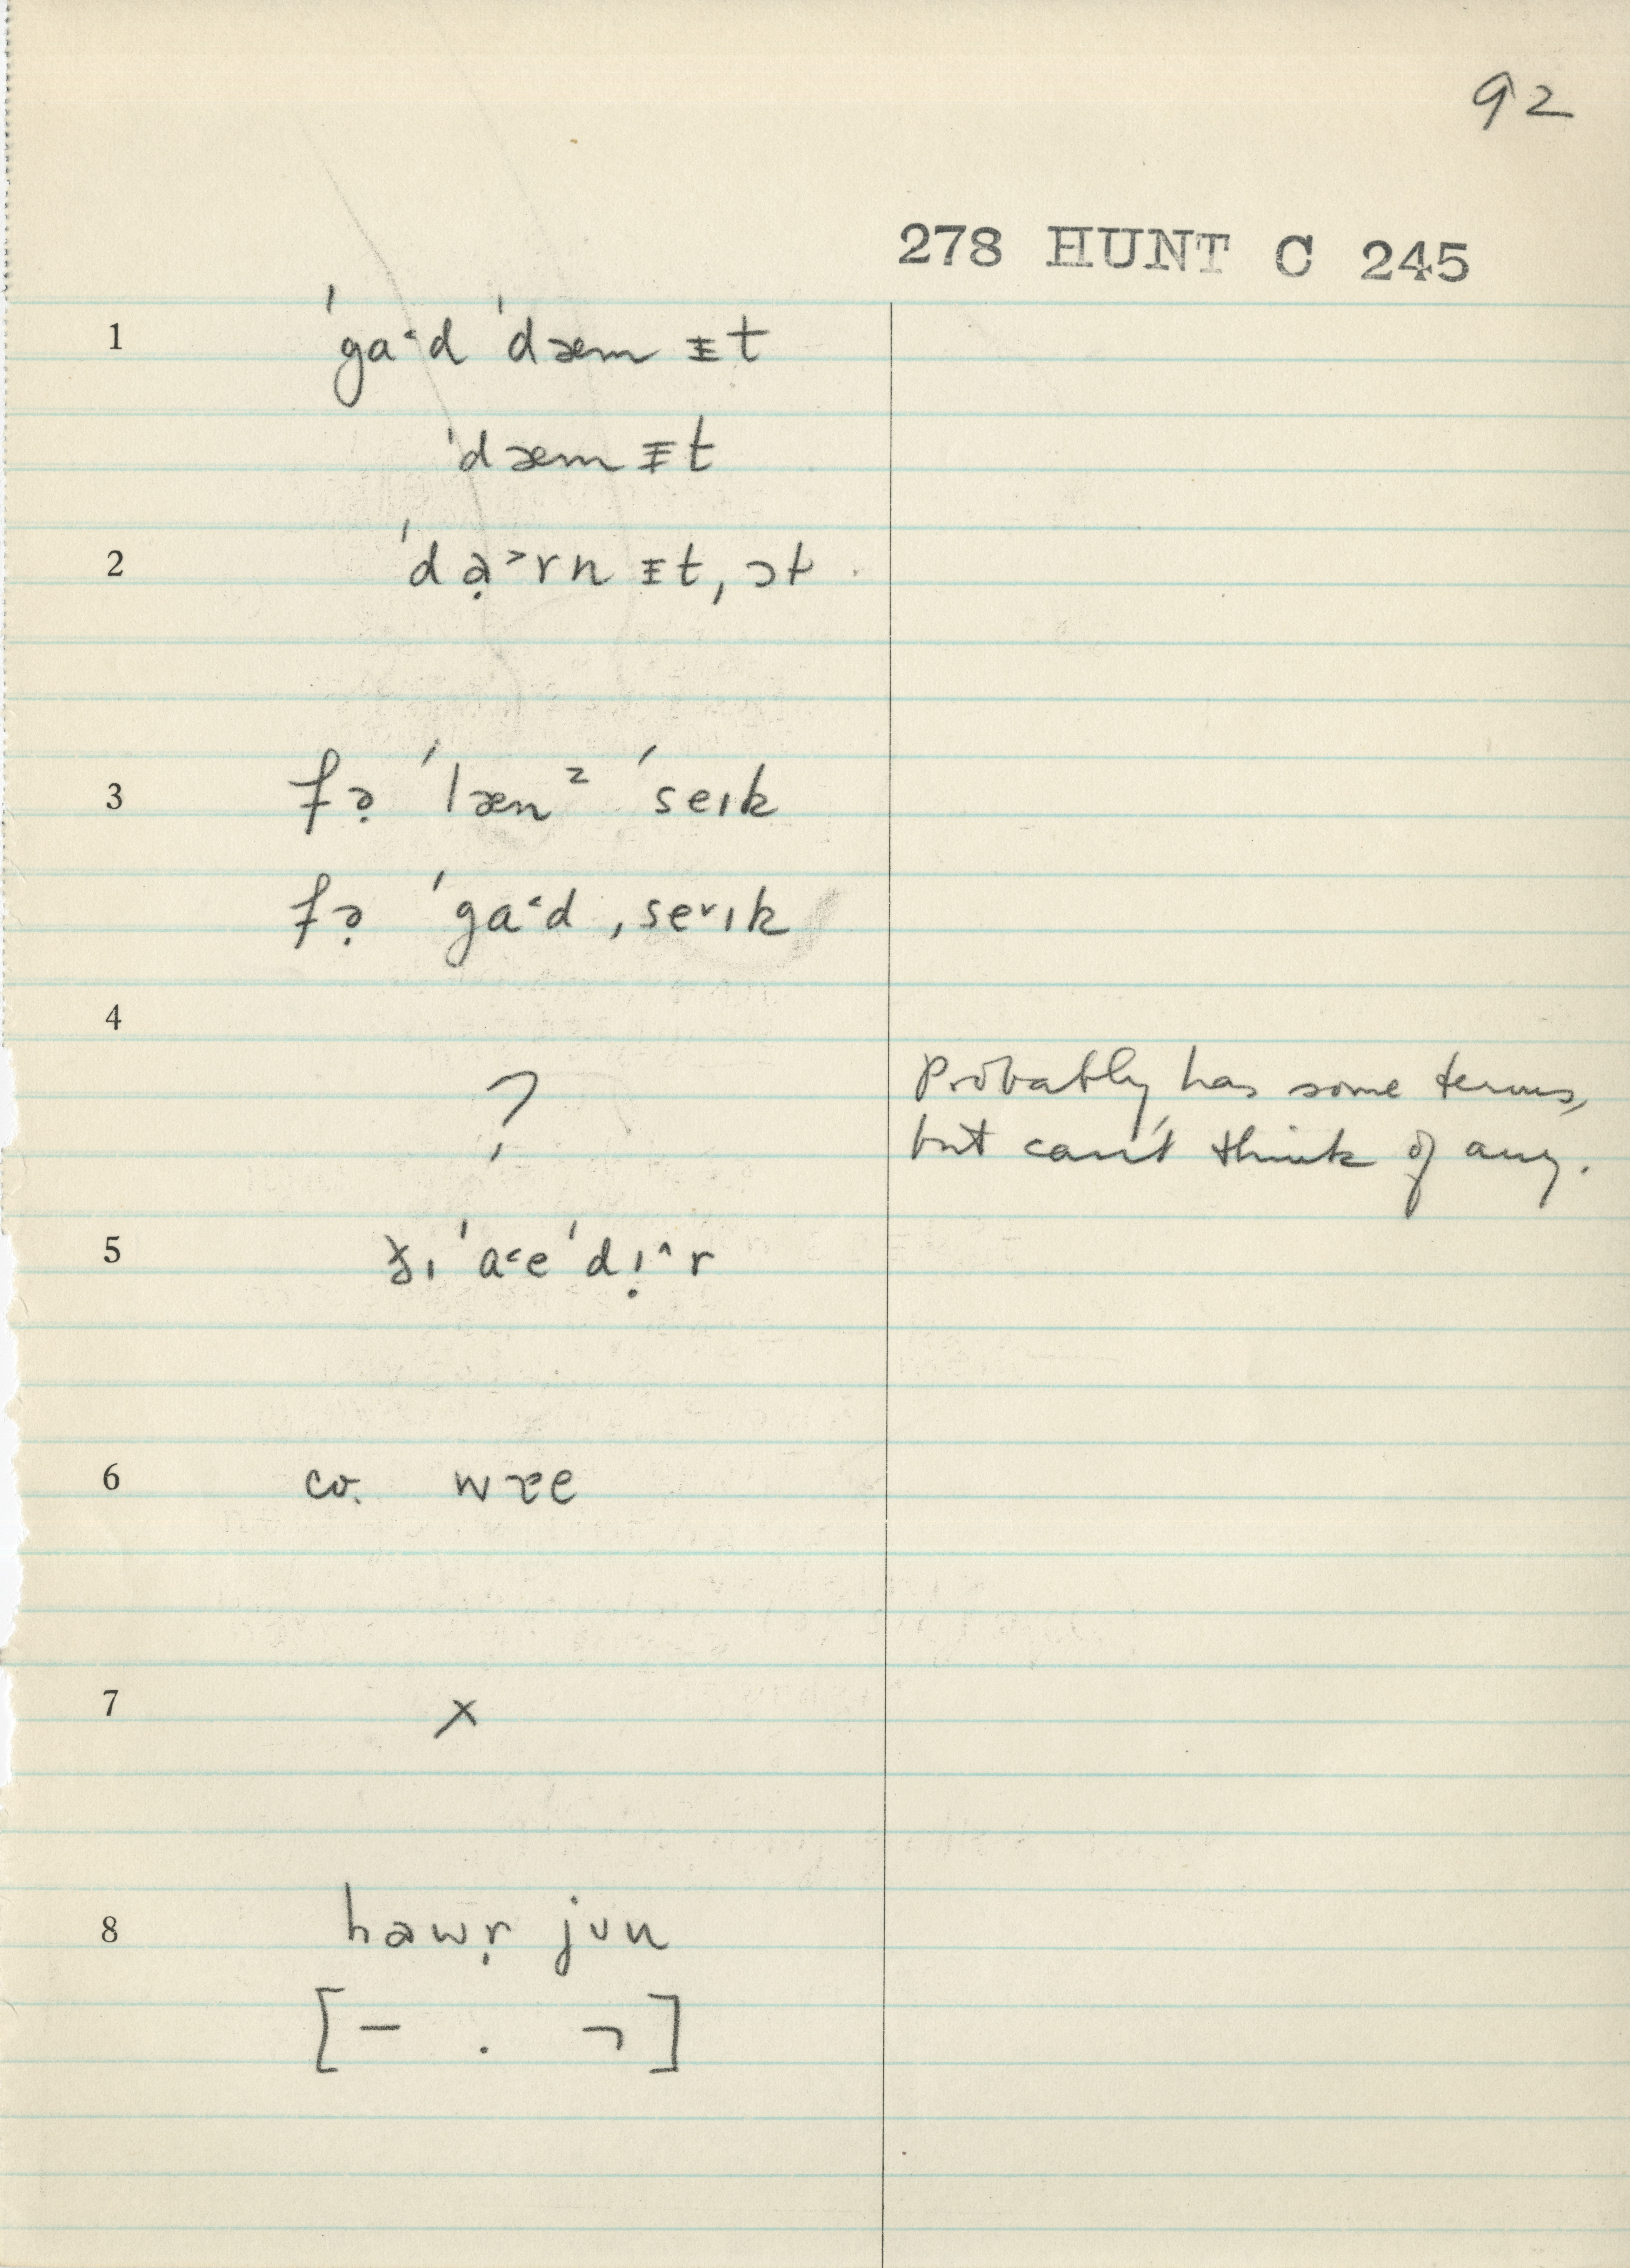 92
278 HUNT C 245
1 ˈga˂d ˈdæm ᵻt
ˈdæm ᵻt
2 ˈdạ˃rn ᵻt, ɔt
3 fə̣ ˈlænᶻ ˈseɪk
fə̣ ˈga˂d ˌse˅ɪk
4
? Probably has some terms,
but can't think of any.
5 ɪ ˈa˂e ˈdɪ̣˄r
6 co. wɤe
7 ×
8 hawṛ jʊu
[– . ¬]